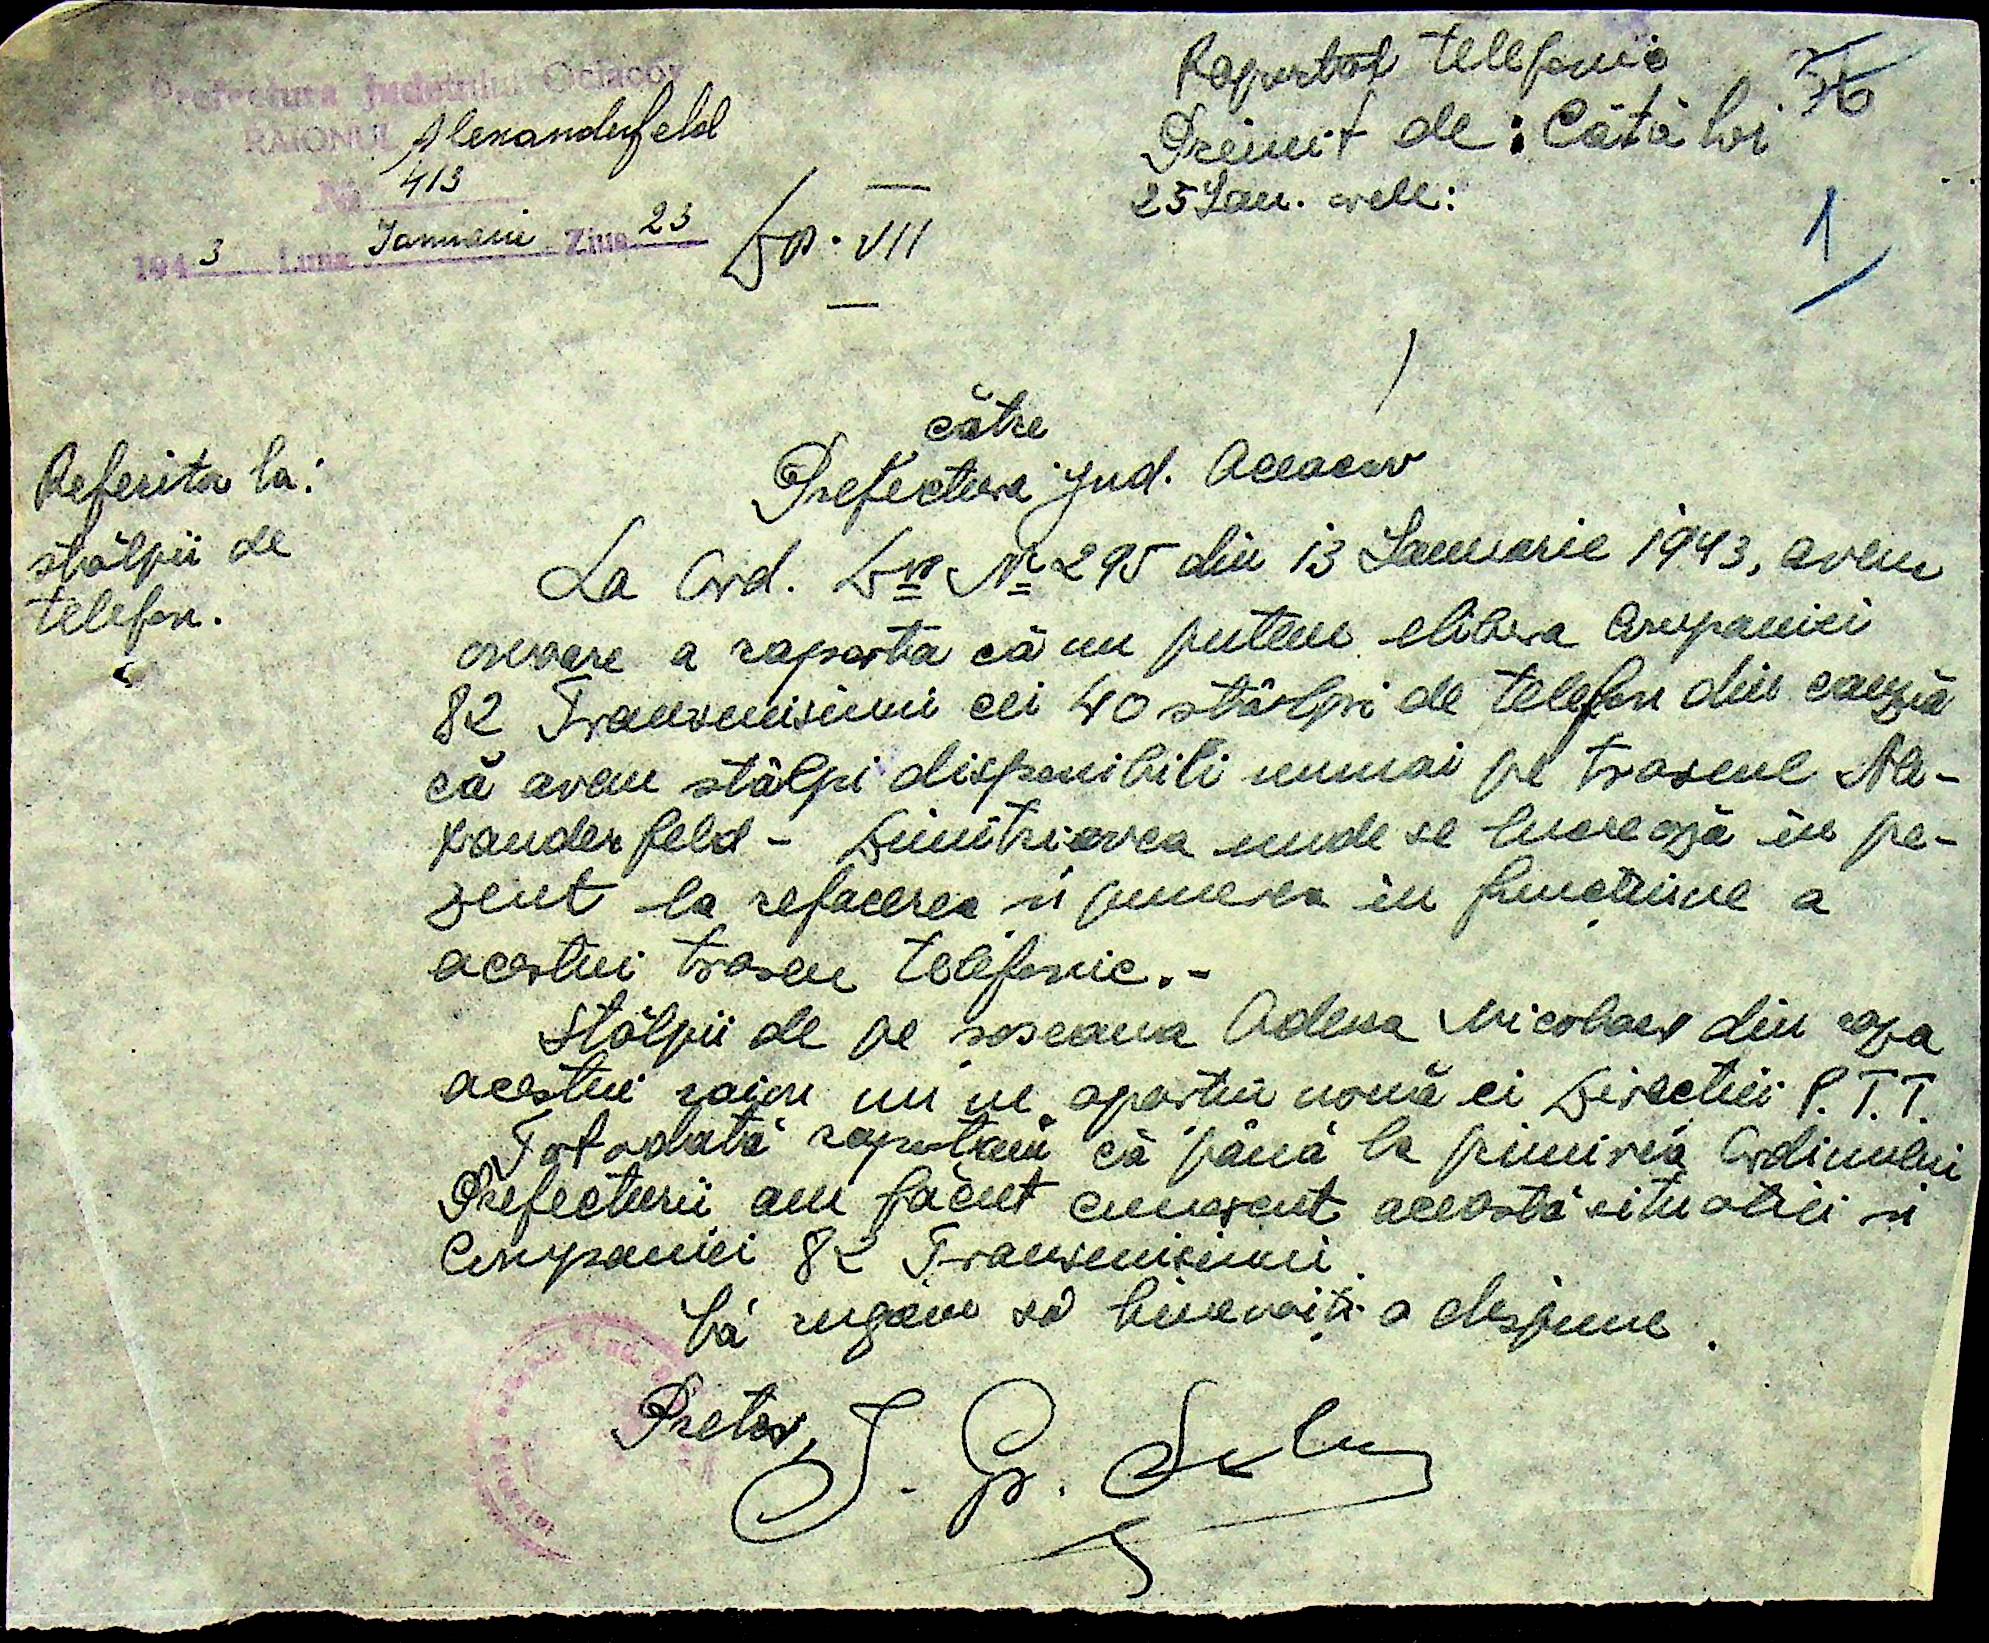 Prefectura Judetului Ociacov
RAIONUL Alexanderfeld
No 413
1943 Luna Ianuarie Ziua 23
VII
Raportat telefonic
Primit de:
25 Ian.
36
1
către
Prefectura Jud. Oceacov
Referitor la:
stâlpii de
telefon.
La Ord. Dv. Nr 295 din 13 Ianuarie 1943, avem
onoare a raporta că nu putem elibera Companiei
82 Transmisiuni cei 40 stâlpi de telefon din cauză
că avem stâlpi disponibili numai pe traseul Ale-
xanderfeld - Dimitrievca unde se lucrează în pe-
zent la refacerea și punerea în funcțiune a
acestui traseu telefonic.-
Stâlpii de pe șoseaua Odesa Nicolaev din raza
acestui raion nu ne aparțin nouă ci Direcției P.T.T.
Totodată raportăm că până la primirea Ordinului
Prefecturii am făcut cunoscut această situatiei si
Companiei 82 Transmisiuni.
Vă rugăm să binevoiți a dispune.
Pretor,